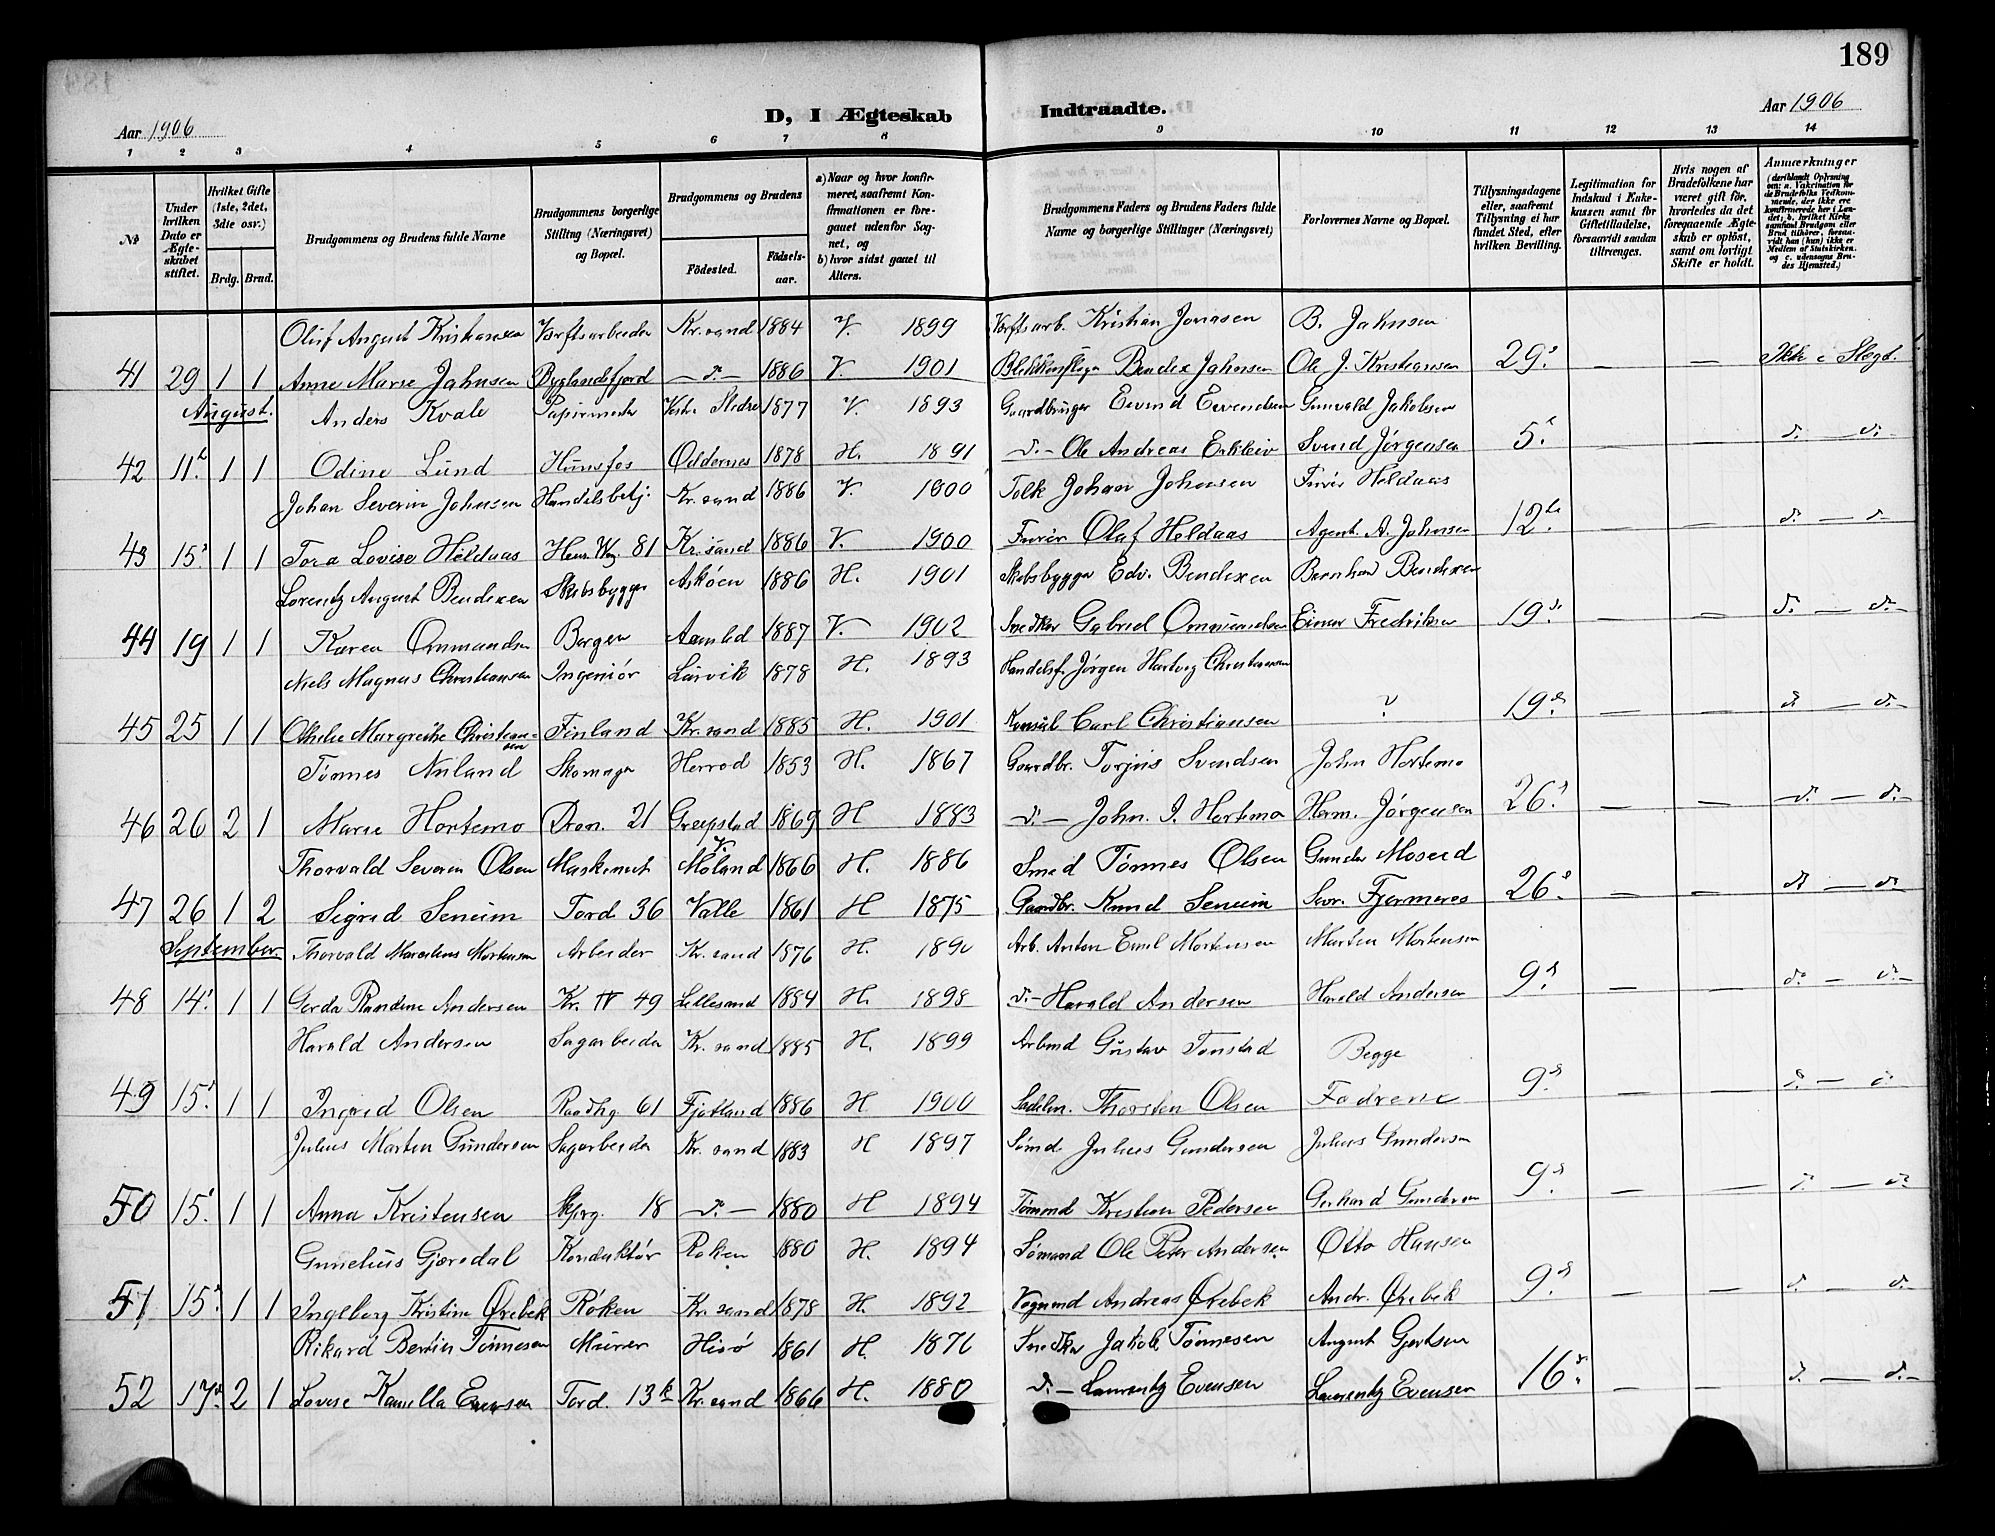 189
Aar 1906
D, I Ægteskab Indtraadte.
Aar 1906
1 2 3 4 5 6 7 8 9 10 11 12 13 14
№
Under hvilken Dato er Ægteskabet stiftet.
Hvilket Gifte (1ste, 2det, 3die osv.)
Brdg. Brud.
Brudgommens og Brudens fulde Navne
Brudgommens borgerlige Stilling (Næringsvei) og Bopæl.
Brudgommens og Brudens
Fødested.
Fødselsaar.
a) Naar og hvor konfirmeret, saafremt Konfirmationen er foregaaet udenfor Sognet, og
b) hvor sidst gaaet til Alters.
Brudgommens Faders og Brudens Faders fulde Navne og borgerlige Stillinger (Næringsvei)
Forlovernes Navne og Bopæl.
Tillysningsdagene eller, saafremt Tillysning ei har fundet Sted, efter hvilken Bevilling.
Legitimation for Indskud i Enkekassen samt for Giftetilladelse, forsaavidt saadan tiltrænges.
Hvis nogen af Brudefolkene har været gift før, hvorledes da det foregaaende Ægteskab er opløst, samt om lovligt Skifte er holdt.
Anmærkninger
(deriblandt Oplysning om: a. Vakcination for de Brudefolks Vedkommende, der ikke ere konfirmerede her i Landet; b. hvilket Kirkesamfund Brudgom eller Brud tilhører, forsaavidt han (hun) ikke er Medlem af Statskirken, og c. udensogns Brudes Hjemsted.)
Oluf August Kristiansen Værftsarbeider Kr.sand 1884 V. 1899 Værftsarb. Kristian Jonasen B. Jahnsen
41 29 1 1 Anne Marie Jahnsen Byglandsfjord — d. — 1886 V. 1901 Bendix Jahnsen Ole J. Kristiansen 29. — — Ikke i Slegt.
August. Anders Kvale Papirmester Vestre Slidre 1877 V. 1893 Gaardbruger Eivind Eivendsen Gunvald Jakobsen
42 11. 1 1 Odine Lund Hunsfos Oddernes 1878 H. 1891 d. — Ole Andreas Erkleiv Svend Jørgensen 5. — — d. d.
Johan Severin Johnsen Handelsbetj. Kr.sand 1886 V. 1900 Tolk Johan Johnsen Furer Heldaas
43 15. 1 1 Tora Lovise Heldaas Henr. Wg. 81 Kr.sand 1886 V. 1900 Furer Olaf Heldaas Agent. A. Johnsen 12. — — d. — d.
Lorentz August Bendixen Skibsbygger Askøen 1886 H. 1901 Skibsbygger Edv. Bendixen Bernhard Bendixen
44 19 1 1 Karen Ommundsen Bergen Aamlid 1887 V. 1902 Snedker Gabriel Ommundsen Einar Fredriksen 19. — — d. — d.
Niels Magnus Christiansen Ingeniør Larvik 1878 H. 1893 Handelsf. Jørgen Hartvig Christiansen
45 25 1 1 Othelie Margrethe Christiansen Finland Kr.sand 1885 H. 1901 Konsul Carl Christiansen ? 19. — — d. — d.
Tønnes Nuland Skomager Herrod 1853 H. 1867 Gaardbr. Torjus Svendsen John Hortemo
46 26 2 1 Marie Hortemo Dron. 21 Greipstad 1869 H 1883 d. — John. J. Hortemo Herm. Jørgensen 26. — — d. — d.
Thorvald Severin Olsen Maskinist V. Moland 1866 H. 1886 Smed Tønnes Olsen Gunder Moseid
47 26 1 2 Sigrid Seneim Tord 36 Valle 1861 H 1875 Gaardbr. Knud Seneim Sev. Fjermeros 26. — — d — d.
September. Thorvald Marcelius Mortensen Arbeider Kr.sand 1876 H. 1890 Arb. Anton Emil Mortensen Martin Mortensen
48 14. 1 1 Gerda Randine Andersen Kr. IV 49 Lillesand 1884 H. 1898 d. — Harald Andersen Harald Andersen 9. — — d. — d.
Harald Andersen Sagarbeider Kr.sand 1885 H. 1899 Arbmd Gustav Tonstad Begge
49 15. 1 1 Ingrid Olsen Raadhg. 61 Fjotland 1886 H 1900 Sadelm. Thorsten Olsen Fædrene 9. — — d. — d.
Julius Martin Gundersen Sagarbeider Kr.sand 1883 H 1897 Sømd Julius Gundersen Julius Gundersen
50 15. 1 1 Anna Kristensen Skprg. 18 — d. — 1880 H 1894 Tømmd Kristian Pedersen Gerhard Gundersen 9. — — d. — d.
Gunelius Gjersdal Konduktør Røken 1880 H. 1894 Sømand Ole Peter Andersen Otto Hansen
51 15. 1 1 Ingeborg Kristine Ørebek Røken Kr.sand 1878 H. 1892 Vognmd Andreas Ørebek Andr. Ørebek 9. — — d. — d.
Rikard Bertin Tønnesen Murer Hisø 1861 H. 1876 Snedker Jakob Tønnesen August Gjertsen
52 17. 2 1 Lovise Kamilla Evensen Tord. 13 Kr.sand 1866 H. 1880 d. — Laurentz Evensen Laurentz Evensen 16. — — d. — d.